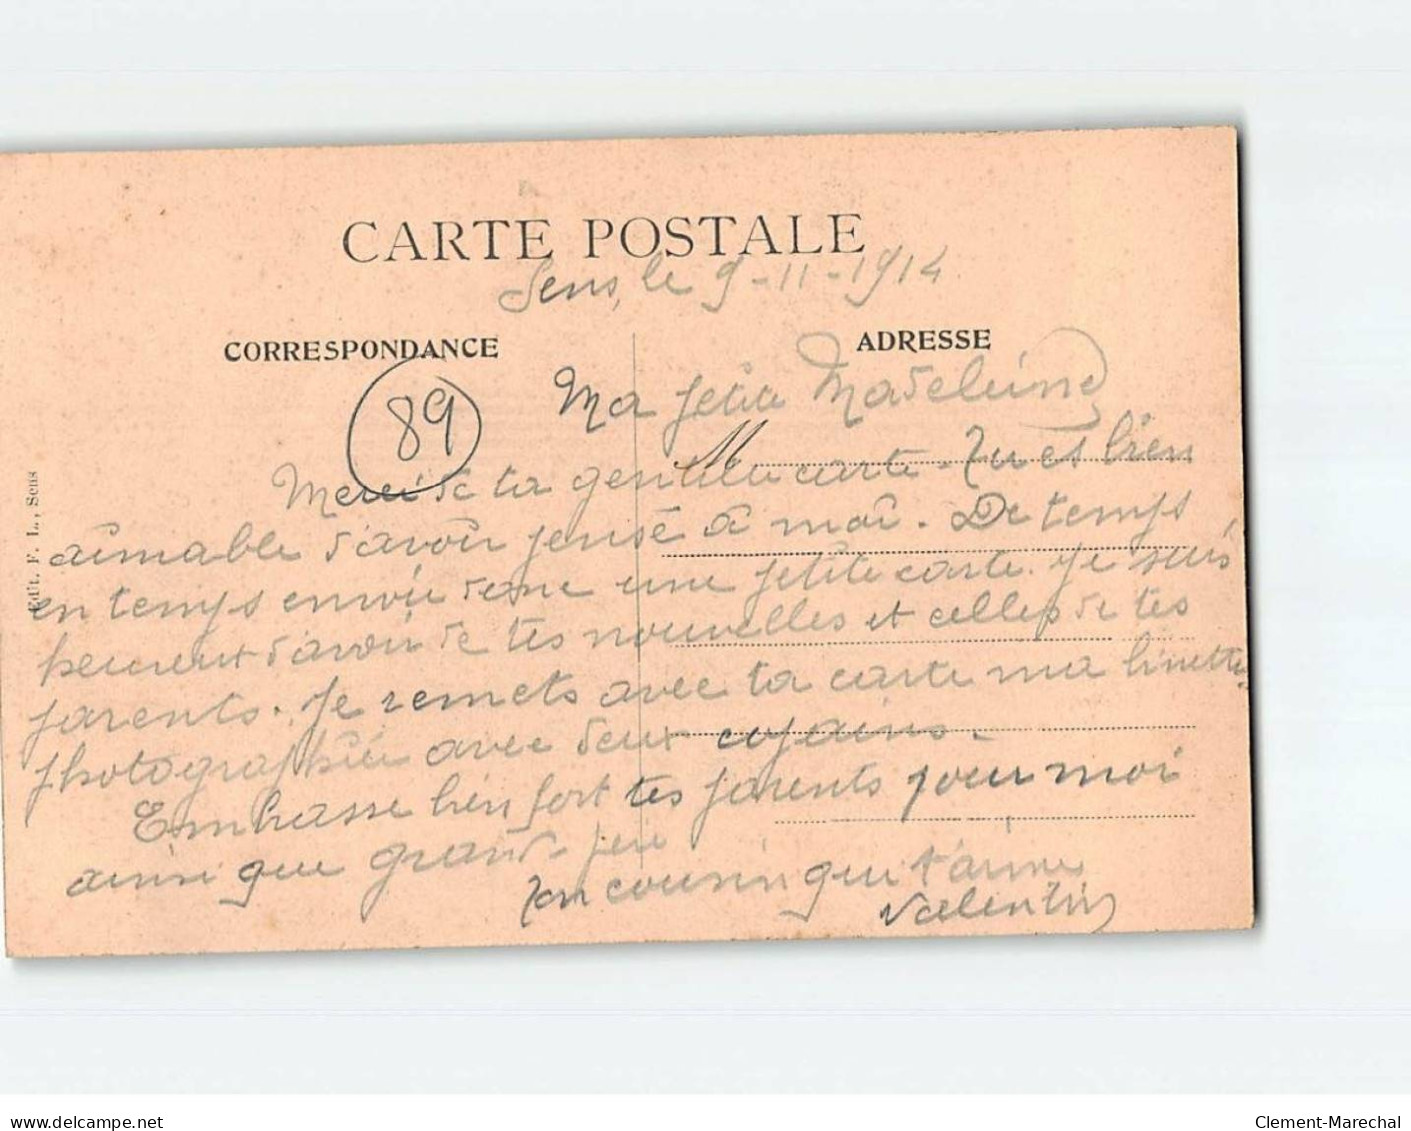 CARTE POSTALE
Sens, le 9-11-1914
CORRESPONDANCE
ADRESSE
89
Ma petite Madeleine
M
Merci de ta gentille carte. Tu es bien
aimable d'avoir pensé à moi. De temps
en temps envoie donc une petite carte. Je suis
heureux d'avoir de tes nouvelles et celles de tes
parents. Je remets avec ta carte ma binette
photographiée avec deux copains.
Embrasse bien fort tes parents pour moi
ainsi que grand-père
Ton cousin qui t'aime
Valentin
Edit. F. L., Sens
www.delcampe.net
Clement-Marechal